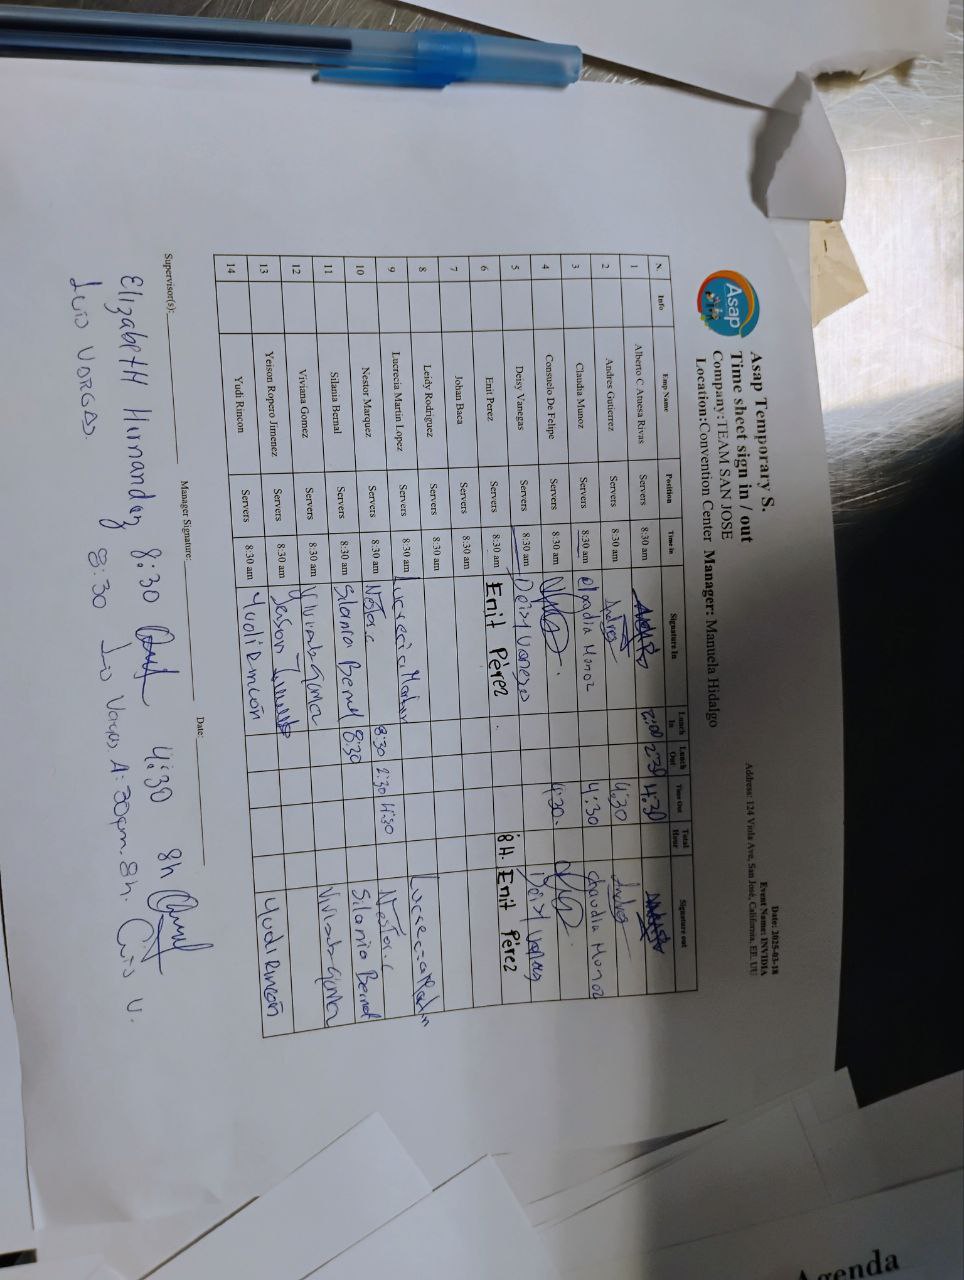 Asap
Asap Temporary S.
Time sheet sign in / out
Company:TEAM SAN JOSE
Location:Convention Center Manager: Manuela Hidalgo
Date: 2025-03-18
Event Name: INVIDIA
Address: 124 Viola Ave, San José, California, EE. UU
N. Info Emp Name Position Time in Signature In Lunch In Lunch Out Time Out Total Hour Signature out
1 Alberto C Atuesa Rivas Servers 8:30 am 2:00 2:30 4:30
2 Andres Gutierrez Servers 8:30 am Andres 4:30 Andres
3 Claudia Munoz Servers 8:30 am claudia Munoz 4:30 Claudia Munoz
4 Consuelo De Felipe Servers 8:30 am 4:30.
5 Deisy Vanegas Servers 8:30 am Deisy Vanegas Deisy Vanegas
6 Enit Perez Servers 8:30 am Enit Pérez 8H. Enit Pérez
7 Johan Baca Servers 8:30 am
8 Leidy Rodriguez Servers 8:30 am
9 Lucrecia Martin Lopez Servers 8:30 am Lucrecia Martin Lucrecia Martin
10 Nestor Marquez Servers 8:30 am Nestor.c 8:30 2:30 4:30 Nestor.c
11 Silania Bernal Servers 8:30 am Silania Bernal 8:30 Silania Bernal
12 Viviana Gomez Servers 8:30 am
13 Yeison Ropero Jimenez Servers 8:30 am Yeison
14 Yudi Rincon Servers 8:30 am Yudi Rincón Yudi Rincón
Supervisor(s): Manager Signature: Date:
Elizabeth Hernandez 8:30 4:30 8h
Luis Vargas 8:30 Luis Vargas 4:30pm. 8h. Luis V.
Agenda